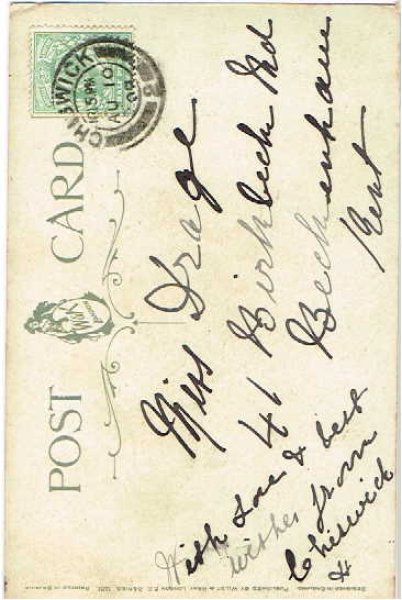 POST CARD
CHISWICK
AU 10
Miss Drage
41 Birkbeck Rd
Beckenham
Kent
With love & best
wishes from
Chiswick
DESIGNED IN ENGLAND. PUBLISHED BY WILDT & KRAY, LONDON, E.C. SERIES, PRINTED IN